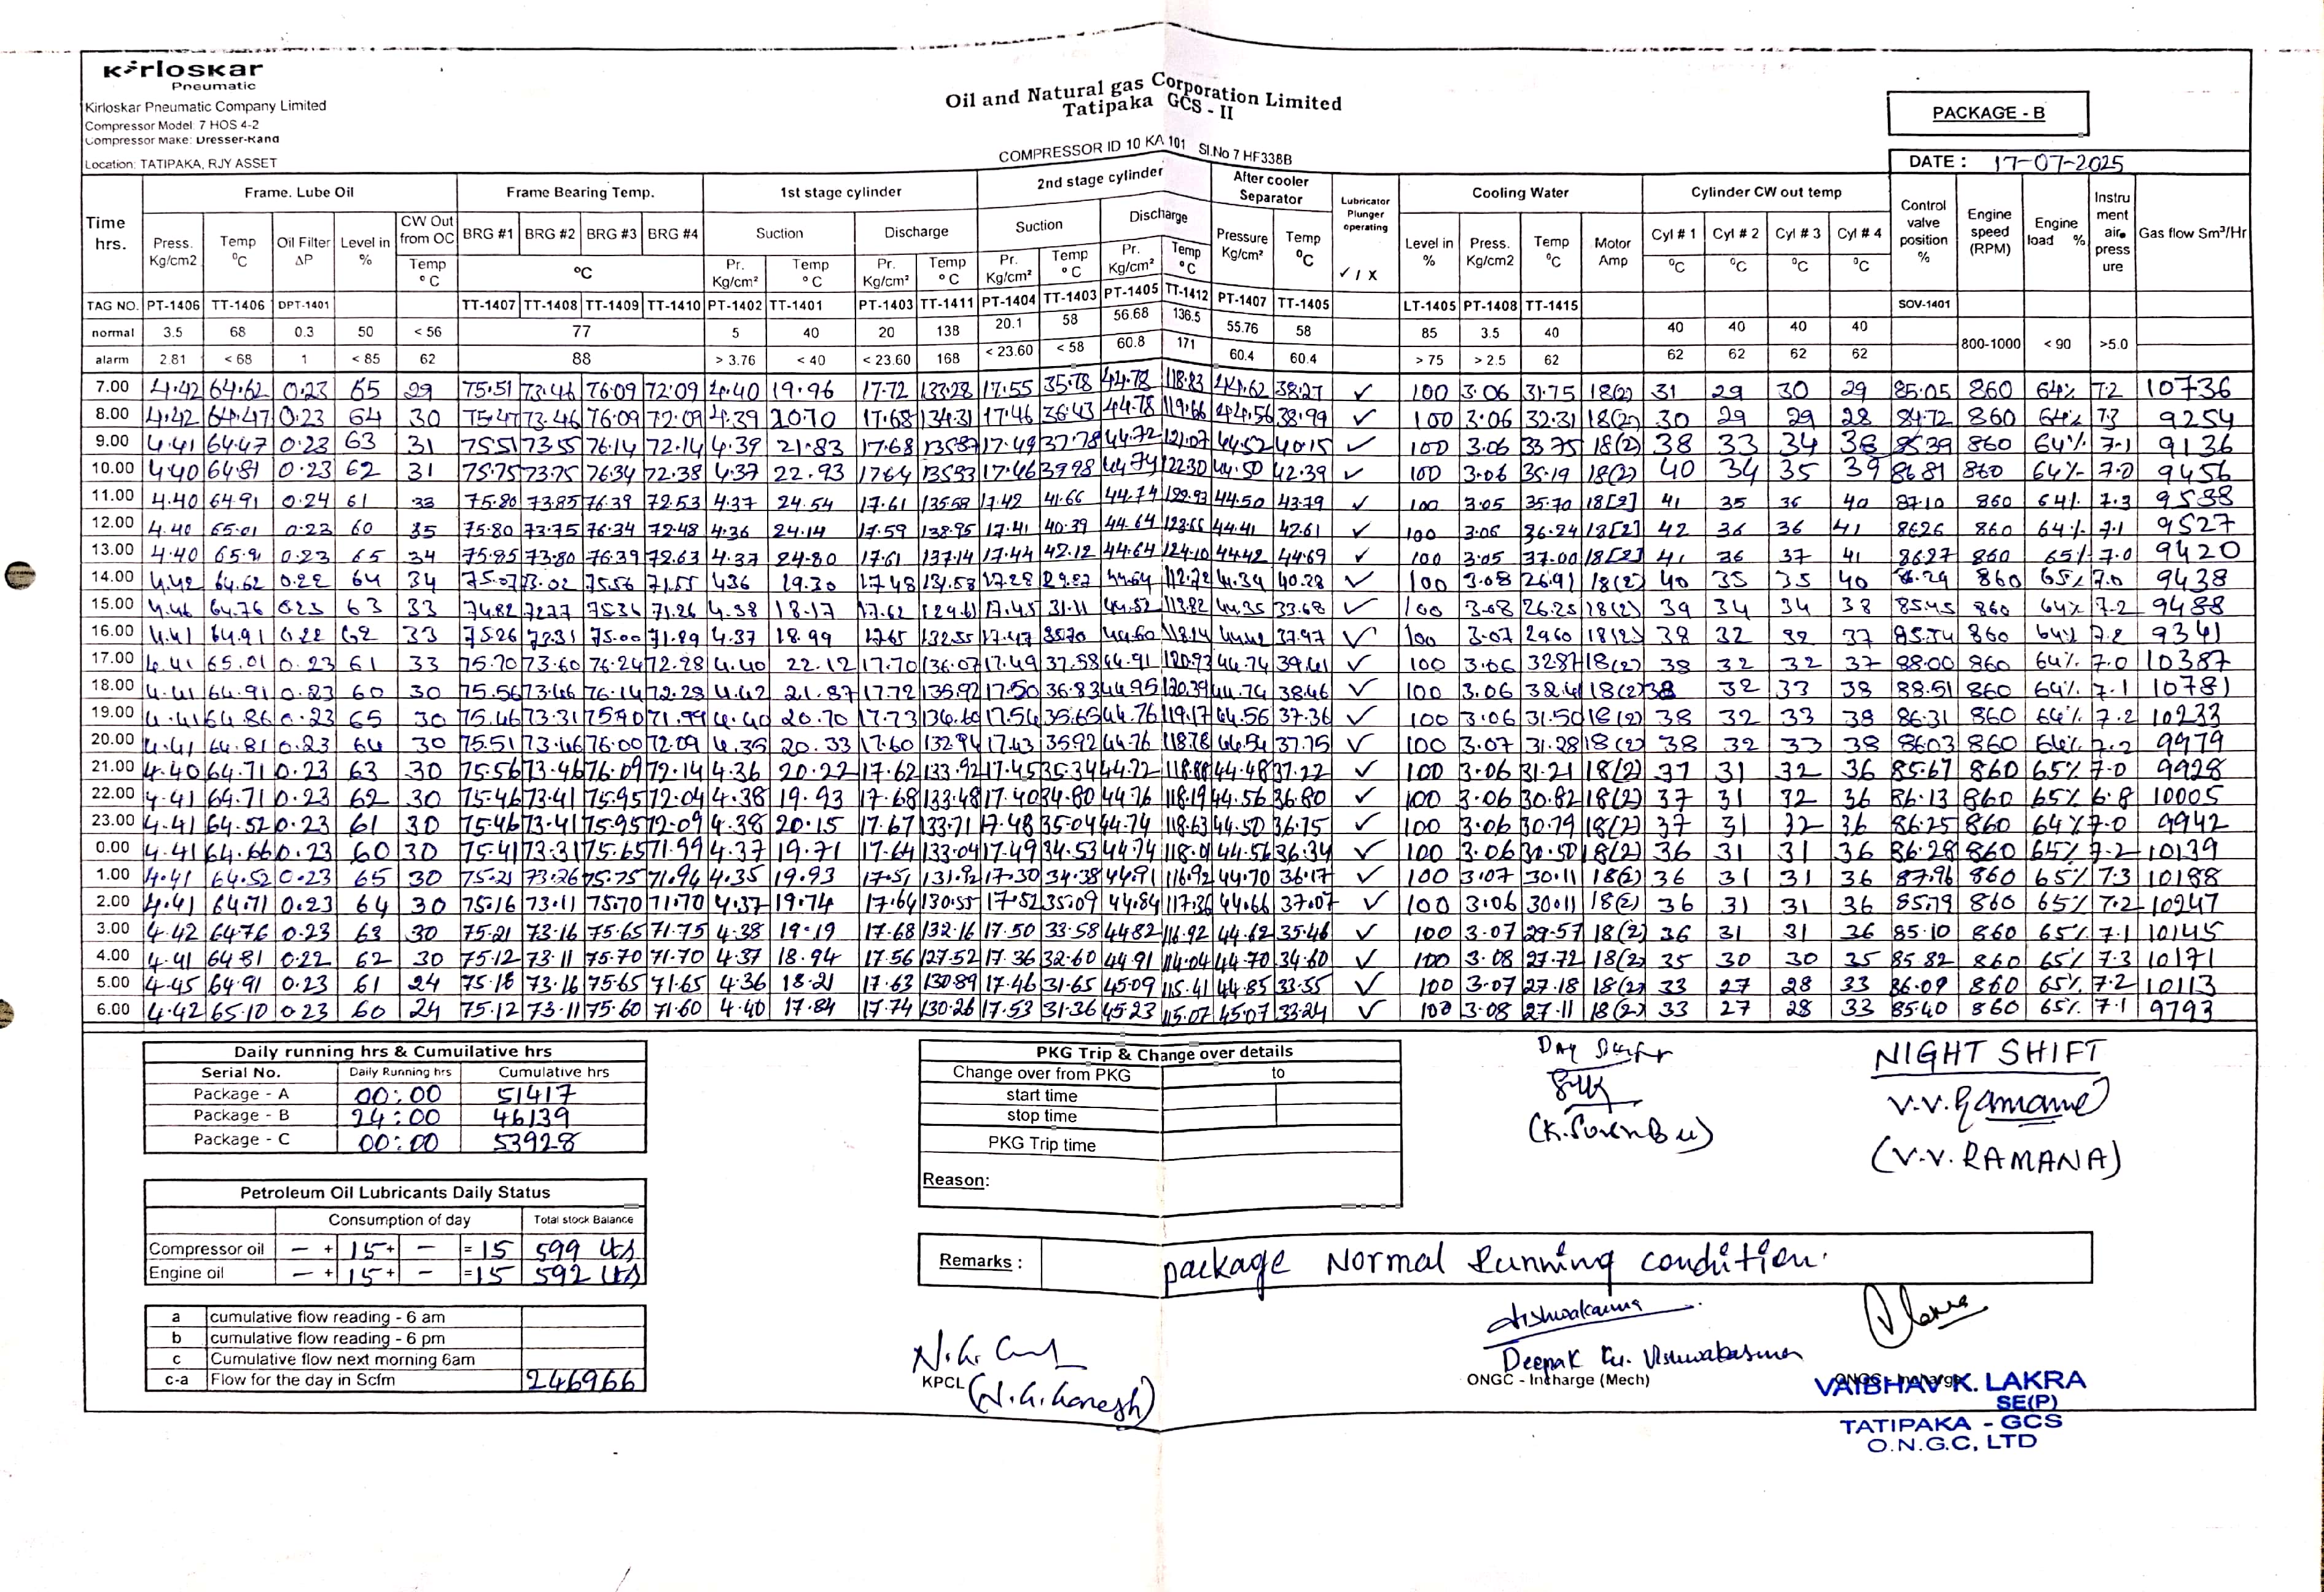 Kirloskar
Pneumatic
Kirloskar Pneumatic Company Limited
Compressor Model 7 HOS 4-2
Compressor Make: Dresser-Rand
Location: TATIPAKA, RJY ASSET
Oil and Natural gas Corporation Limited
Tatipaka GCS - II
COMPRESSOR ID 10 KA 101 Sl.No 7 HF338B
PACKAGE - B
DATE : 17-07-2025
Time hrs. Frame. Lube Oil Frame Bearing Temp. 1st stage cylinder 2nd stage cylinder After cooler Separator Lubricator Plunger operating Cooling Water Cylinder CW out temp Control valve position % Engine speed (RPM) Engine load % Instru ment air press ure Gas flow Sm³/Hr
Press. Kg/cm2 Temp °C Oil Filter ΔP Level in % CW Out from OC BRG #1 BRG #2 BRG #3 BRG #4 Suction Discharge Suction Discharge Pressure Kg/cm² Temp °C ✓ / X Level in % Press. Kg/cm2 Temp °C Motor Amp Cyl # 1 Cyl # 2 Cyl # 3 Cyl # 4
Temp °C °C Pr. Kg/cm² Temp °C Pr. Kg/cm² Temp °C Pr. Kg/cm² Temp °C Pr. Kg/cm² Temp °C °C °C °C °C
TAG NO. PT-1406 TT-1406 DPT-1401 TT-1407 TT-1408 TT-1409 TT-1410 PT-1402 TT-1401 PT-1403 TT-1411 PT-1404 TT-1403 PT-1405 TT-1412 PT-1407 TT-1405 LT-1405 PT-1408 TT-1415 SOV-1401
normal 3.5 68 0.3 50 < 56 77 5 40 20 138 20.1 58 56.68 136.5 55.76 58 85 3.5 40 40 40 40 40 800-1000 < 90 >5.0
alarm 2.81 < 68 1 < 85 62 88 > 3.76 < 40 < 23.60 168 < 23.60 < 58 60.8 171 60.4 60.4 > 75 > 2.5 62 62 62 62 62
7.00 4.42 64.62 0.23 65 29 75.51 73.46 76.09 72.09 4.40 19.96 17.72 133.28 17.55 35.78 44.78 118.83 44.62 38.27 ✓ 100 3.06 31.75 18(2) 31 29 30 29 85.05 860 64% 7.2 10736
8.00 4.42 64.47 0.23 64 30 75.47 73.46 76.09 72.09 4.39 20.70 17.68 134.31 17.46 36.43 44.78 119.66 44.56 38.99 ✓ 100 3.06 32.31 18(2) 30 29 29 28 84.72 860 64% 7.3 9254
9.00 4.41 64.47 0.23 63 31 75.51 73.55 76.14 72.14 4.39 21.83 17.68 135.87 17.49 37.78 44.72 121.07 44.52 40.15 ✓ 100 3.06 33.75 18(2) 38 33 34 38 85.39 860 64% 7.1 9136
10.00 4.40 64.81 0.23 62 31 75.75 73.75 76.34 72.38 4.37 22.93 17.64 135.93 17.46 39.28 44.74 122.30 44.50 42.39 ✓ 100 3.06 35.19 18(2) 40 34 35 39 86.81 860 64% 7.0 9456
11.00 4.40 64.91 0.24 61 33 75.80 73.85 76.39 72.53 4.37 24.54 17.61 135.58 17.42 41.66 44.74 44.50 43.79 ✓ 100 3.05 35.70 18[2] 41 35 36 40 87.10 860 64% 7.3 9588
12.00 4.40 65.01 0.23 60 35 75.80 73.75 76.34 72.48 4.36 24.14 17.59 138.95 17.41 40.39 44.64 123.66 44.41 42.61 ✓ 100 3.06 36.24 18[2] 42 36 36 41 86.26 860 64% 7.1 9527
13.00 4.40 65.91 0.23 65 34 75.85 73.80 76.39 72.63 4.37 24.80 17.61 137.14 17.44 42.12 44.64 124.10 44.42 44.69 ✓ 100 3.05 37.00 18[2] 41 36 37 41 86.27 860 65% 7.0 9420
14.00 4.42 64.62 0.22 64 34 75.07 73.02 75.56 71.55 4.36 19.30 17.48 131.58 17.28 29.87 44.64 112.72 44.34 40.28 ✓ 100 3.08 26.91 18(2) 40 35 35 40 860 65% 7.0 9438
15.00 4.46 64.76 0.23 63 33 74.82 72.77 75.36 71.26 4.38 18.17 17.62 129.61 17.45 31.11 44.52 113.82 44.35 33.68 ✓ 100 3.08 26.25 18(2) 39 34 34 38 85.45 860 64% 7.2 9488
16.00 4.41 64.91 0.22 62 33 75.26 73.31 75.00 71.89 4.37 18.99 17.65 132.55 17.47 35.70 44.60 118.14 37.97 ✓ 100 3.07 29.60 18(2) 38 32 32 37 85.54 860 64% 7.2 9341
17.00 4.41 65.01 0.23 61 33 75.70 73.60 76.24 72.28 4.40 22.12 17.70 136.07 17.49 37.58 44.91 120.93 44.74 39.41 ✓ 100 3.06 32.87 18(2) 38 32 32 37 88.00 860 64% 7.0 10387
18.00 4.41 64.91 0.23 60 30 75.56 73.46 76.14 72.28 4.42 21.87 17.72 135.92 17.50 36.83 44.95 120.39 44.74 38.46 ✓ 100 3.06 32.41 18(2) 38 32 33 38 88.51 860 64% 7.1 10781
19.00 4.41 64.86 0.23 65 30 75.46 73.31 75.90 71.99 4.40 20.70 17.73 134.60 17.54 35.65 44.76 119.17 44.56 37.36 ✓ 100 3.06 31.50 18(2) 38 32 33 38 86.31 860 64% 7.2 10233
20.00 4.41 64.81 0.23 64 30 75.51 73.46 76.00 72.09 4.35 20.33 17.60 132.94 17.43 35.92 44.76 118.78 44.54 37.75 ✓ 100 3.07 31.28 18(2) 38 32 33 38 86.03 860 64% 7.2 9979
21.00 4.40 64.71 0.23 63 30 75.56 73.46 76.09 72.14 4.36 20.22 17.62 133.92 17.45 35.34 44.72 118.88 44.48 37.22 ✓ 100 3.06 31.21 18(2) 37 31 32 36 85.67 860 65% 7.0 9928
22.00 4.41 64.71 0.23 62 30 75.46 73.41 75.95 72.04 4.38 19.93 17.68 133.48 17.40 34.80 44.76 118.19 44.56 36.80 ✓ 100 3.06 30.82 18(2) 37 31 32 36 86.13 860 65% 6.8 10005
23.00 4.41 64.52 0.23 61 30 75.46 73.41 75.95 72.09 4.38 20.15 17.67 133.71 17.48 35.04 44.74 118.63 44.50 36.75 ✓ 100 3.06 30.79 18(2) 37 31 32 36 86.25 860 64% 7.0 9942
0.00 4.41 64.66 0.23 60 30 75.41 73.31 75.65 71.99 4.37 19.71 17.64 133.04 17.49 34.53 44.74 118.01 44.56 36.34 ✓ 100 3.06 30.50 18(2) 36 31 31 36 86.28 860 65% 7.2 10139
1.00 4.41 64.52 0.23 65 30 75.21 73.26 75.75 71.94 4.35 19.93 17.51 131.92 17.30 34.38 44.91 116.92 44.70 36.17 ✓ 100 3.07 30.11 18(2) 36 31 31 36 87.96 860 65% 7.3 10188
2.00 4.41 64.71 0.23 64 30 75.16 73.11 75.70 71.70 4.37 19.74 17.64 130.55 17.52 35.09 44.84 117.36 44.66 37.07 ✓ 100 3.06 30.11 18(2) 36 31 31 36 85.79 860 65% 7.2 10247
3.00 4.42 64.76 0.23 63 30 75.21 73.16 75.65 71.75 4.38 19.19 17.68 132.16 17.50 33.58 44.82 116.92 44.62 35.46 ✓ 100 3.07 29.57 18(2) 36 31 31 36 85.10 860 65% 7.1 10145
4.00 4.41 64.81 0.22 62 30 75.12 73.11 75.70 71.70 4.37 18.94 17.56 127.52 17.36 32.60 44.91 114.04 44.70 34.60 ✓ 100 3.08 27.72 18(2) 35 30 30 35 85.82 860 65% 7.3 10171
5.00 4.45 64.91 0.23 61 24 75.16 73.16 75.65 71.65 4.36 18.21 17.63 130.89 17.46 31.65 45.09 115.41 44.85 33.55 ✓ 100 3.07 27.18 18(2) 33 27 28 33 86.09 860 65% 7.2 10113
6.00 4.42 65.10 0.23 60 24 75.12 73.11 75.60 71.60 4.40 17.84 17.74 130.26 17.53 31.36 45.23 115.07 45.07 33.24 ✓ 100 3.08 27.11 18(2) 33 27 28 33 85.40 860 65% 7.1 9793
Daily running hrs & Cumuilative hrs
Serial No. Daily Running hrs Cumulative hrs
Package - A 00:00 51417
Package - B 24:00 46139
Package - C 00:00 53928
Petroleum Oil Lubricants Daily Status
Consumption of day Total stock Balance
Compressor oil - + 15 + - = 15 599 Lts
Engine oil - + 15 + - = 15 592 Lts
a cumulative flow reading - 6 am
b cumulative flow reading - 6 pm
c Cumulative flow next morning 6am
c-a Flow for the day in Scfm 246966
PKG Trip & Change over details
Change over from PKG to
start time
stop time
PKG Trip time
Reason:
Remarks : package Normal Running condition.
Day Shift
NIGHT SHIFT
V.V.Ramana
(V.V. RAMANA)
KPCL
(N.G.Ganesh)
Vishwakarma
Deepak Kr. Vishwakarma
ONGC - Incharge (Mech)
ONGC - Incharge
VAIBHAV K. LAKRA
SE(P)
TATIPAKA - GCS
O.N.G.C, LTD